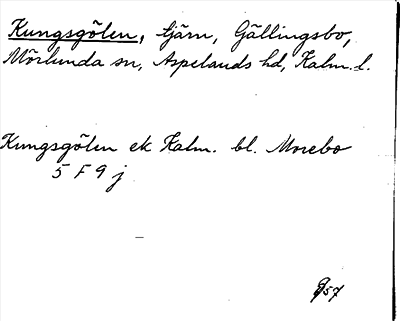 Kungsgölen, tjärn, Gällingsbo,
Mörlunda sn, Aspelands hd, Kalm. l.
Kungsgölen ek Kalm. bl. Morebo
5 F 9 j
57